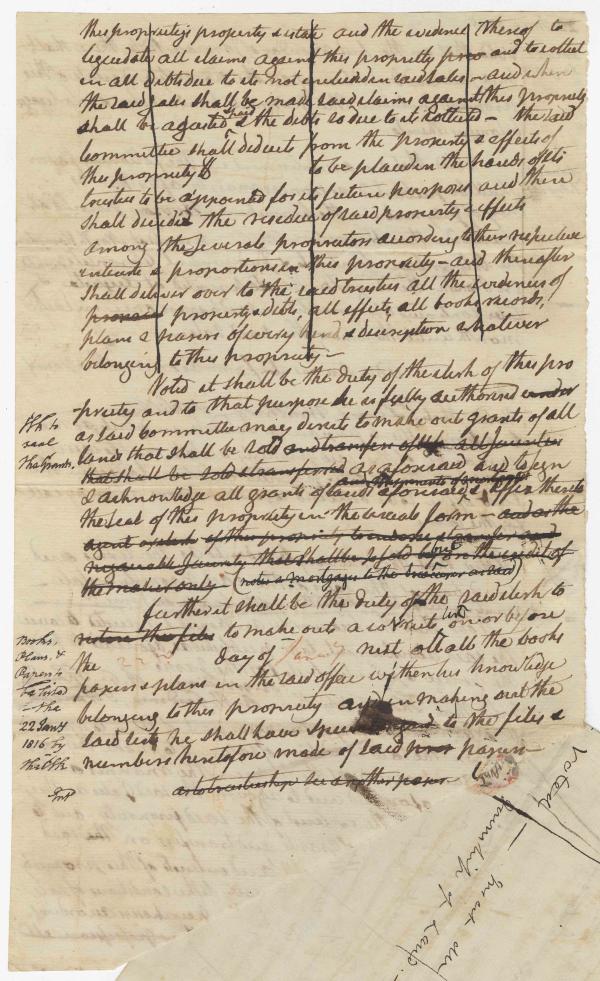 this propriety's property & estate and the evidence thereof to
liquidate all claims against this propriety pro and to collect
in all debts due to it not included in said sales — and when
the said sales shall be made said claims against this propriety
shall be adjusted & the debts so due to it collected — the said
Committee shall deduct from the property & effects of
this propriety $ to be placed in the hands of its
trustees to be appointed for its future purposes and there
shall divide the residue of said property & effects
among the several proprietors according to their respective
interests & proportions in this propriety — and thereafter
shall deliver over to the said trustees all the evidences of
property & debts, all effects, all books, records,
plans & papers of every kind & description whatever
belonging to this propriety —
Voted it shall be the duty of the clerk of this pro
priety and to that purpose he is fully authorised under
as said Committee may direct to make out grants of all
lands that shall be sold and transfers of all securities
that shall be sold & transferred as aforesaid and to sign
and assignments of mortgages
& acknowledge all grants of lands aforesaid, & affix thereto
the seal of this propriety in the usual form — and as the
agent & clerk of this propriety to endorse & transfer
negociable security that shall be sold on the credit of
the maker only (note & mortgages to the treasurer as said)
further it shall be the duty of the said clerk to
return the files to make out a correct list on or before
the 22d day of January next all the books
papers & plans in the said office within his knowledge
belonging to this propriety and in making out the
said list he shall have special regard to the files &
numbers heretofore made of said papers —
as to trusteeship see another paper
Clk to
seal
the Grants.
Books,
Plans, &
Papers to
be listed
the
22 Jany
1816 by
the Clk
Voted
Township of
Land